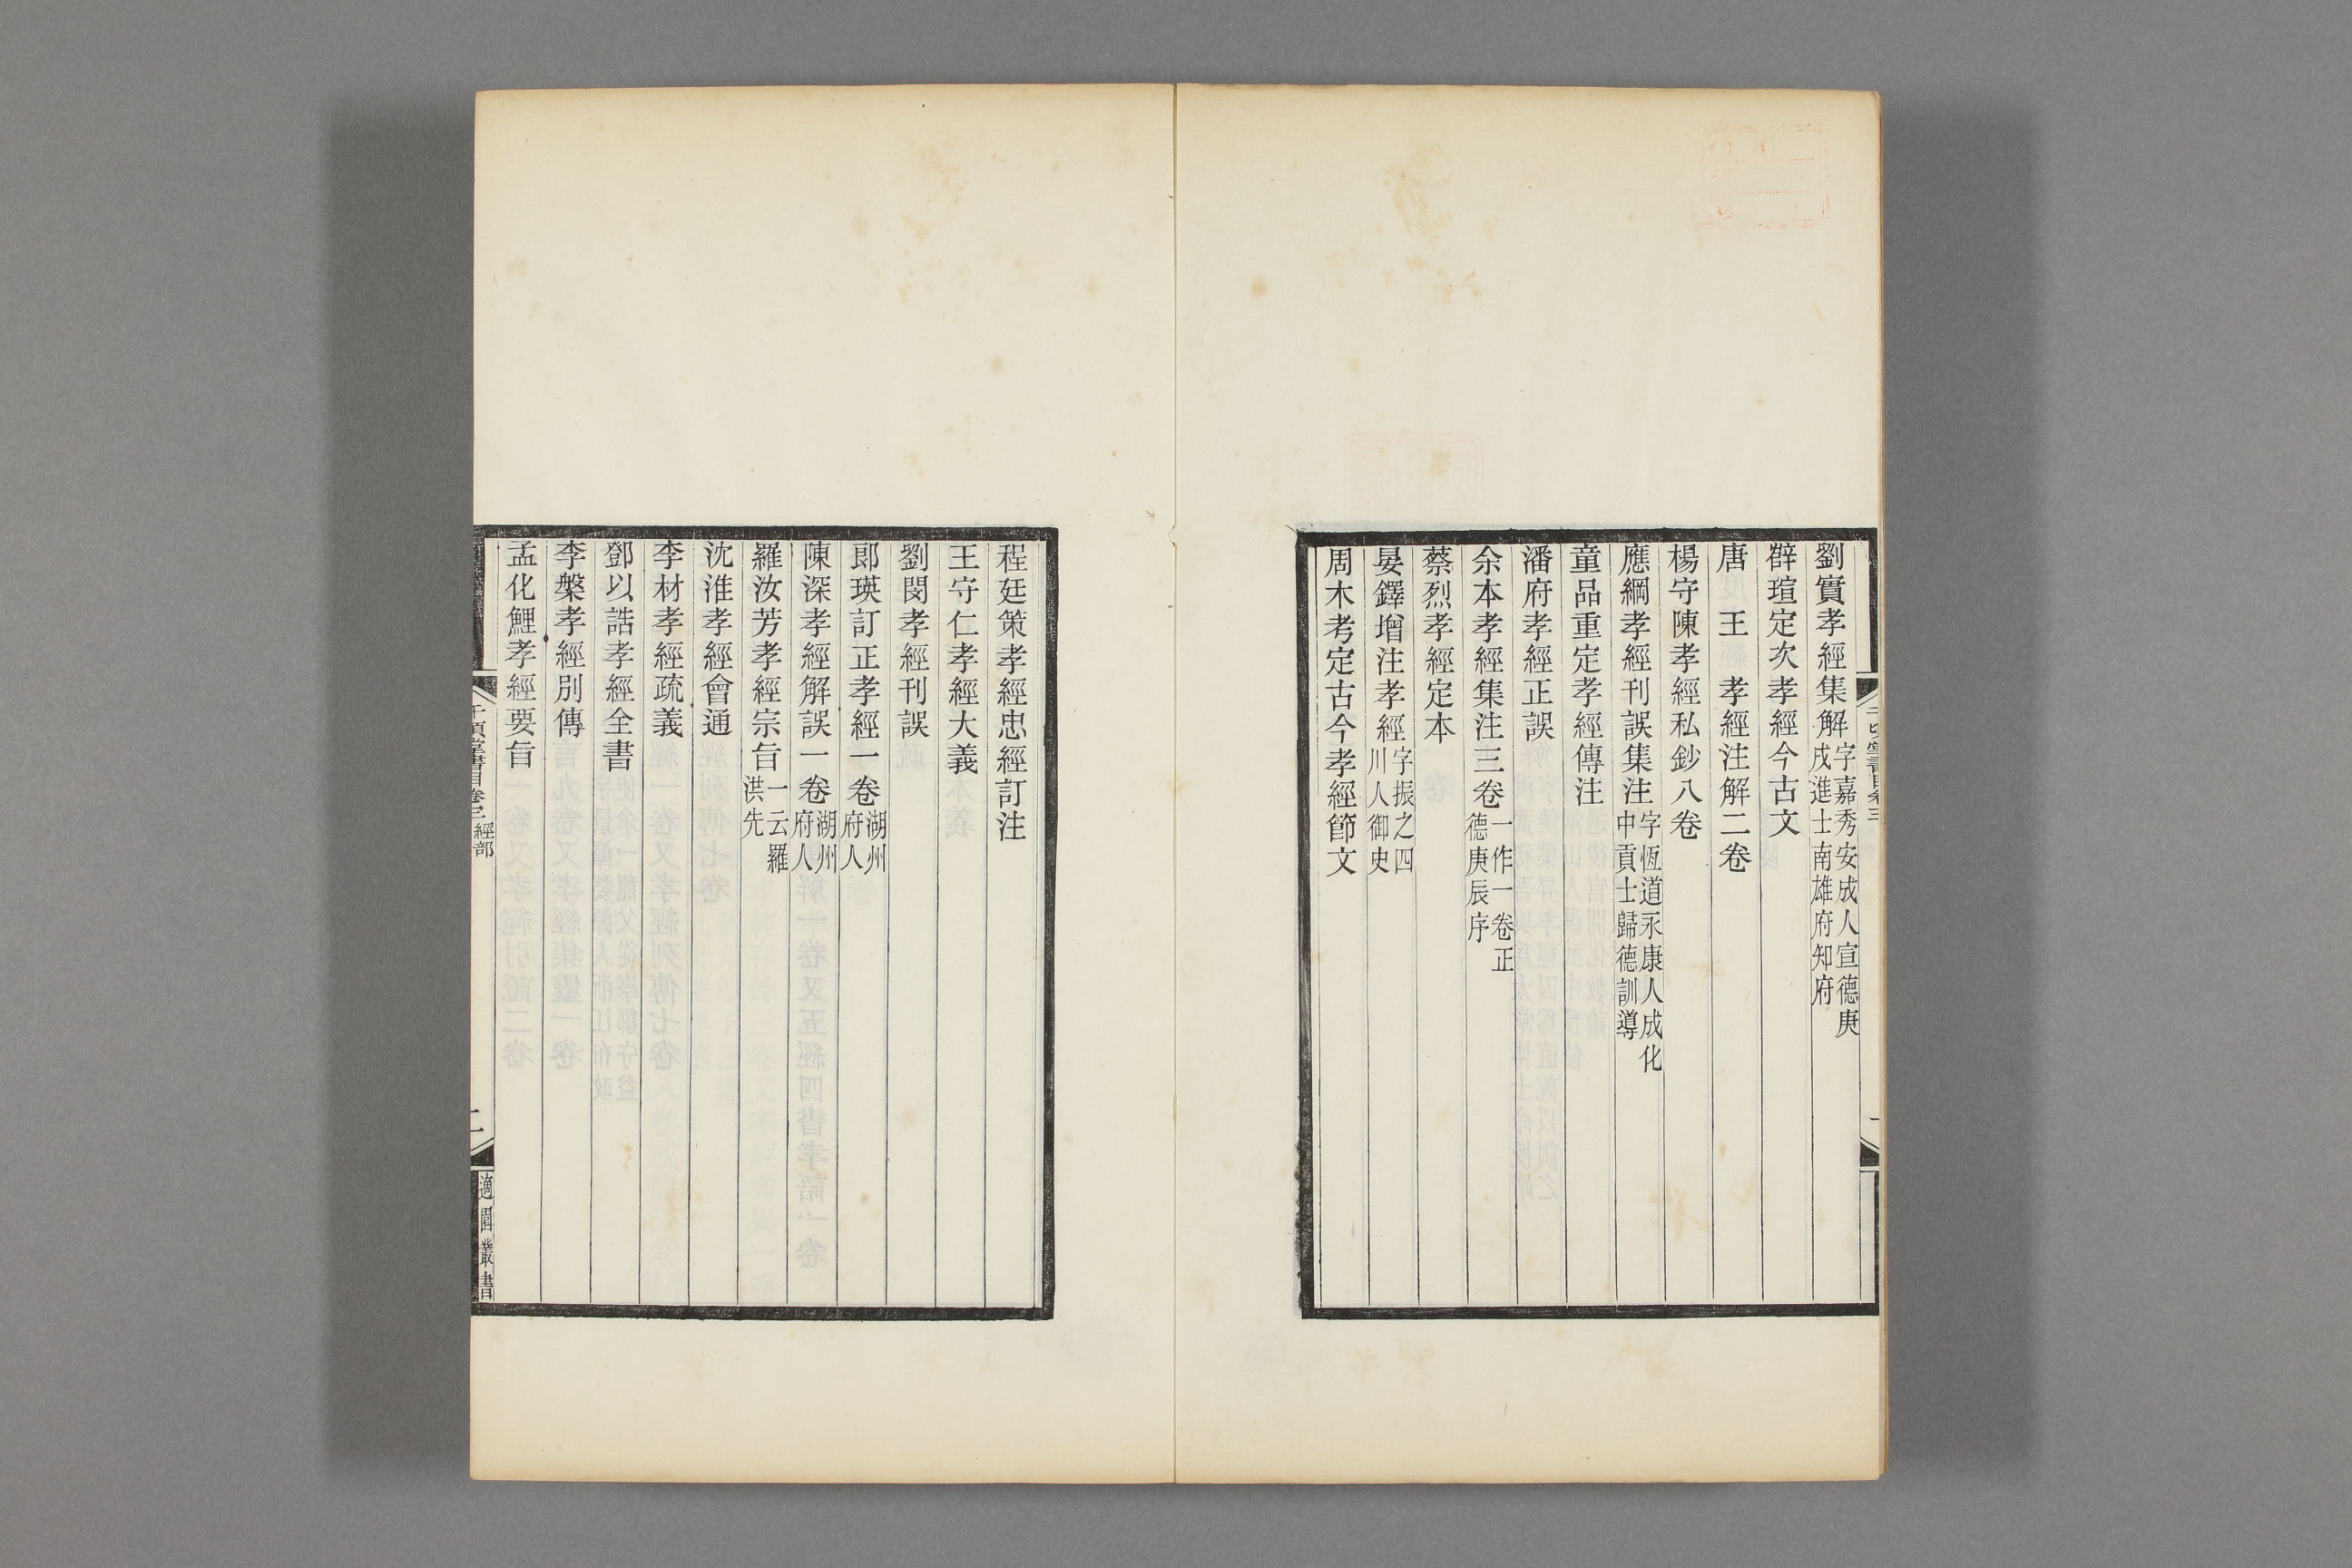 劉實孝經集解字嘉秀安成人宣德庚戌進士南雄府知府
薛瑄定次孝經今古文
唐　王　孝經注解二卷
楊守陳孝經私鈔八卷
應綱孝經刊誤集注字恆道永康人成化中貢士歸德訓導
童品重定孝經傳注
潘府孝經正誤
余本孝經集注三卷一作一卷正德庚辰序
蔡烈孝經定本
晏鐸增注孝經字振之四川人御史
周木考定古今孝經節文
程廷策孝經忠經訂注
王守仁孝經大義
劉閔孝經刊誤
郎瑛訂正孝經一卷湖州府人
陳深孝經解誤一卷湖州府人
羅汝芳孝經宗旨一云羅洪先
沈淮孝經會通
李材孝經疏義
鄧以誥孝經全書
李槃孝經別傳
孟化鯉孝經要旨
千頃堂書目卷三　經部
適園叢書